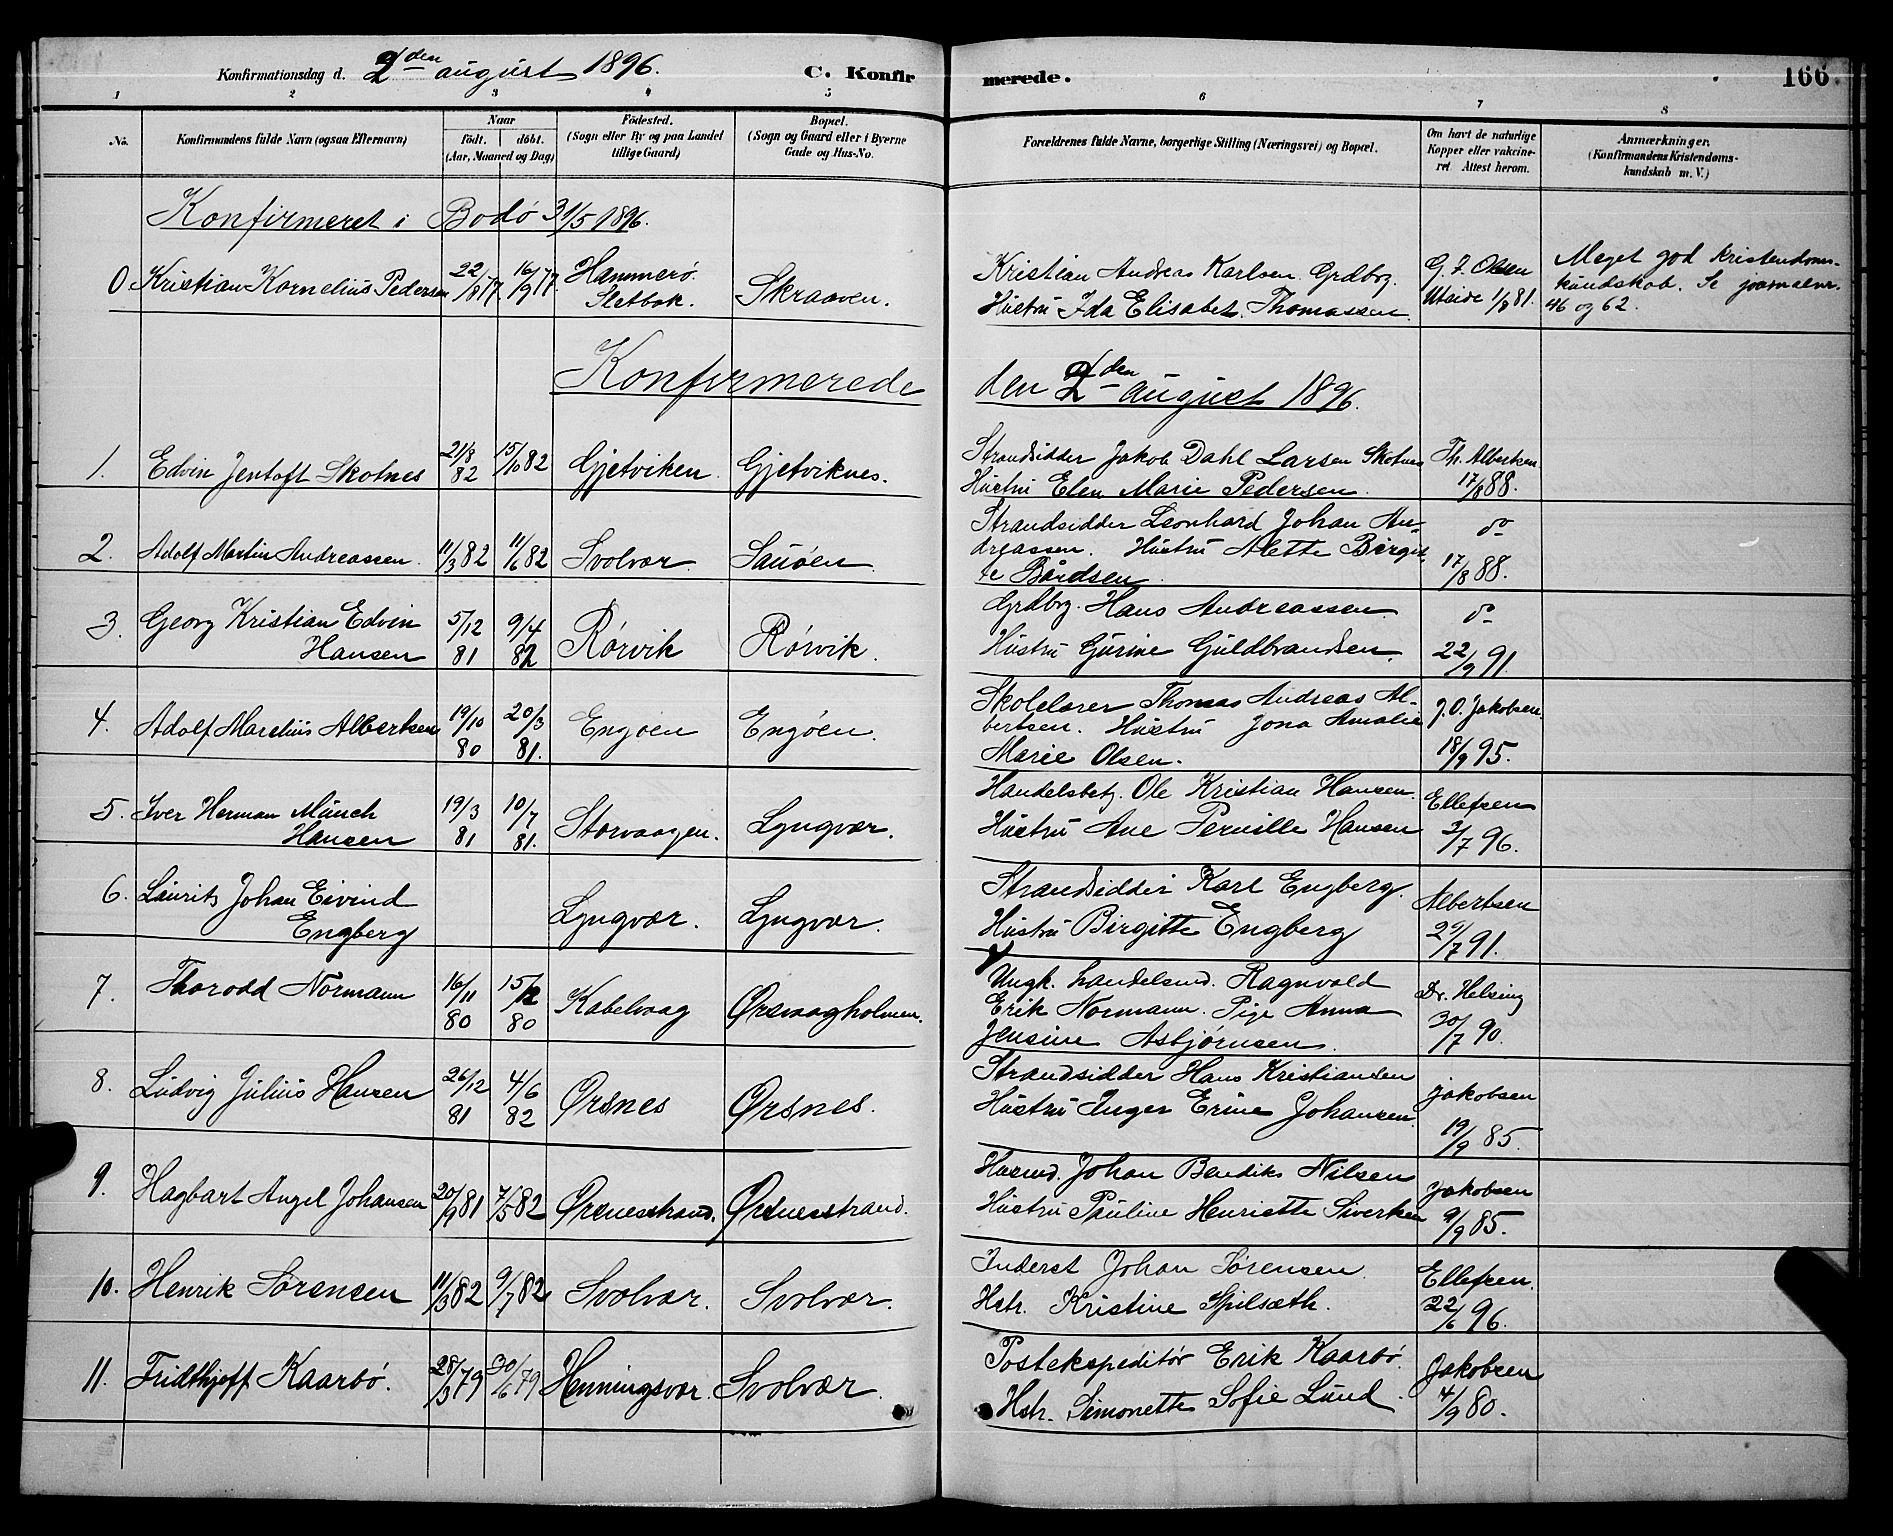 Konfirmationsdag d. 2den august 1896. C. Konfirmerede. 166.
1 2 3 4 5 6 7 8
No. Konfirmandens fulde Navn (ogsaa Efternavn) Naar födt. döbt. (Aar, Maaned og Dag) Födested. (Sogn eller By og paa Landet tillige Gaard) Bopæl. (Sogn og Gaard eller i Byerne Gade og Hus-No. Forældrenes fulde Navne, borgerlige Stilling (Næringsvei) og Bopæl. Om havt de naturlige Kopper eller vakcineret Attest herom. Anmærkninger. (Konfirmandens Kristendomskundskab m. V.)
Konfirmeret i Bodö 31/5 1896.
0 Kristian Kornelius Pedersen 22/8 77. 16/9 77. Hammerö. Sletbak. Skraaven. Kristian Andreas Karlsen Grdbrg.
Hustru Ida Elisabet Thomassen. G. F. Olsen Utside 1/8 81. Meget god kristendoms-
kundskab. Se journalnr.
46 og 62.
Konfirmerede den 2den august 1896.
1. Edvin Jentoft Skotnes 21/8 82 15/10 82 Gjetviken. Gjetviknes. Strandsidder Jakob Dahl Larsen Skotnes
Hustru Elen Marie Pedersen. Th. Albertsen 17/8 88.
2. Adolf Martin Andreassen. 11/3 82 11/6 82 Svolvær. Sauöen. Strandsidder Leonhard Johan An-
dreassen. Hustru Alette Birgit-
te Bårdsen. do 17/8 88.
3. Georg Kristian Edvin
Hansen 5/12 81 9/4 82 Rörvik Rörvik. Grdbrg. Hans Andreassen.
Hustru Gurine Guldbrandsen. do 22/9 91.
4. Adolf Marelius Albertsen 19/10 80 20/3 81. Engöen Engöen. Skolelærer Thomas Andreas Al-
bertsen. Hustru Jona Amalie
Marie Olsen. J. O. Jakobsen. 18/9 95.
5. Iver Herman Münch
Hansen 19/3 81 10/7 81. Storvaagen. Lyngvær. Handelsbetj. Ole Kristian Hansen.
Hustru Ane Pernille Hansen Ellefsen 2/7 96.
6. Laurits Johan Eivind
Engberg Lyngvær. Lyngvær. Strandsidder Karl Engberg.
Hustru Birgitte Engberg Albertsen 29/7 91.
7. Thorodd Normann 16/11 80 15/12 80 Kabelvaag Ørsvaagholmen. Ungk. handelsmd. Ragnvald
Erik Normann. Pige Anna
Jensine Asbjørnsen. Dr. Helsing 30/7 90.
8. Ludvig Julius Hansen 26/12 81 4/6 82 Ørsnes Ørsnes. Strandsidder Hans Kristiansen
Hustru Inger Erine Johansen. Jakobsen 19/9 85.
9. Hagbart Angel Johansen 20/9 81 7/5 82 Ørsnesstrand. Ørsnesstrand. Husmd. Johan Bendiks Nilsen
Hustru Pauline Henriette Sivertsen Jakobsen 9/9 85.
10. Henrik Sørensen 11/3 82 9/7 82 Svolvær. Svolvær. Inderst Johan Sørensen.
Hstr. Kristine Spilsæth. Ellefsen. 22/6 96.
11. Fridthjoff Kaarbö. 28/3 79 30/6 79 Henningsvær. Svolvær. Postekspeditör Erik Kaarbö.
Hstr. Simonette Sofie Lund. Jakobsen 4/9 80.